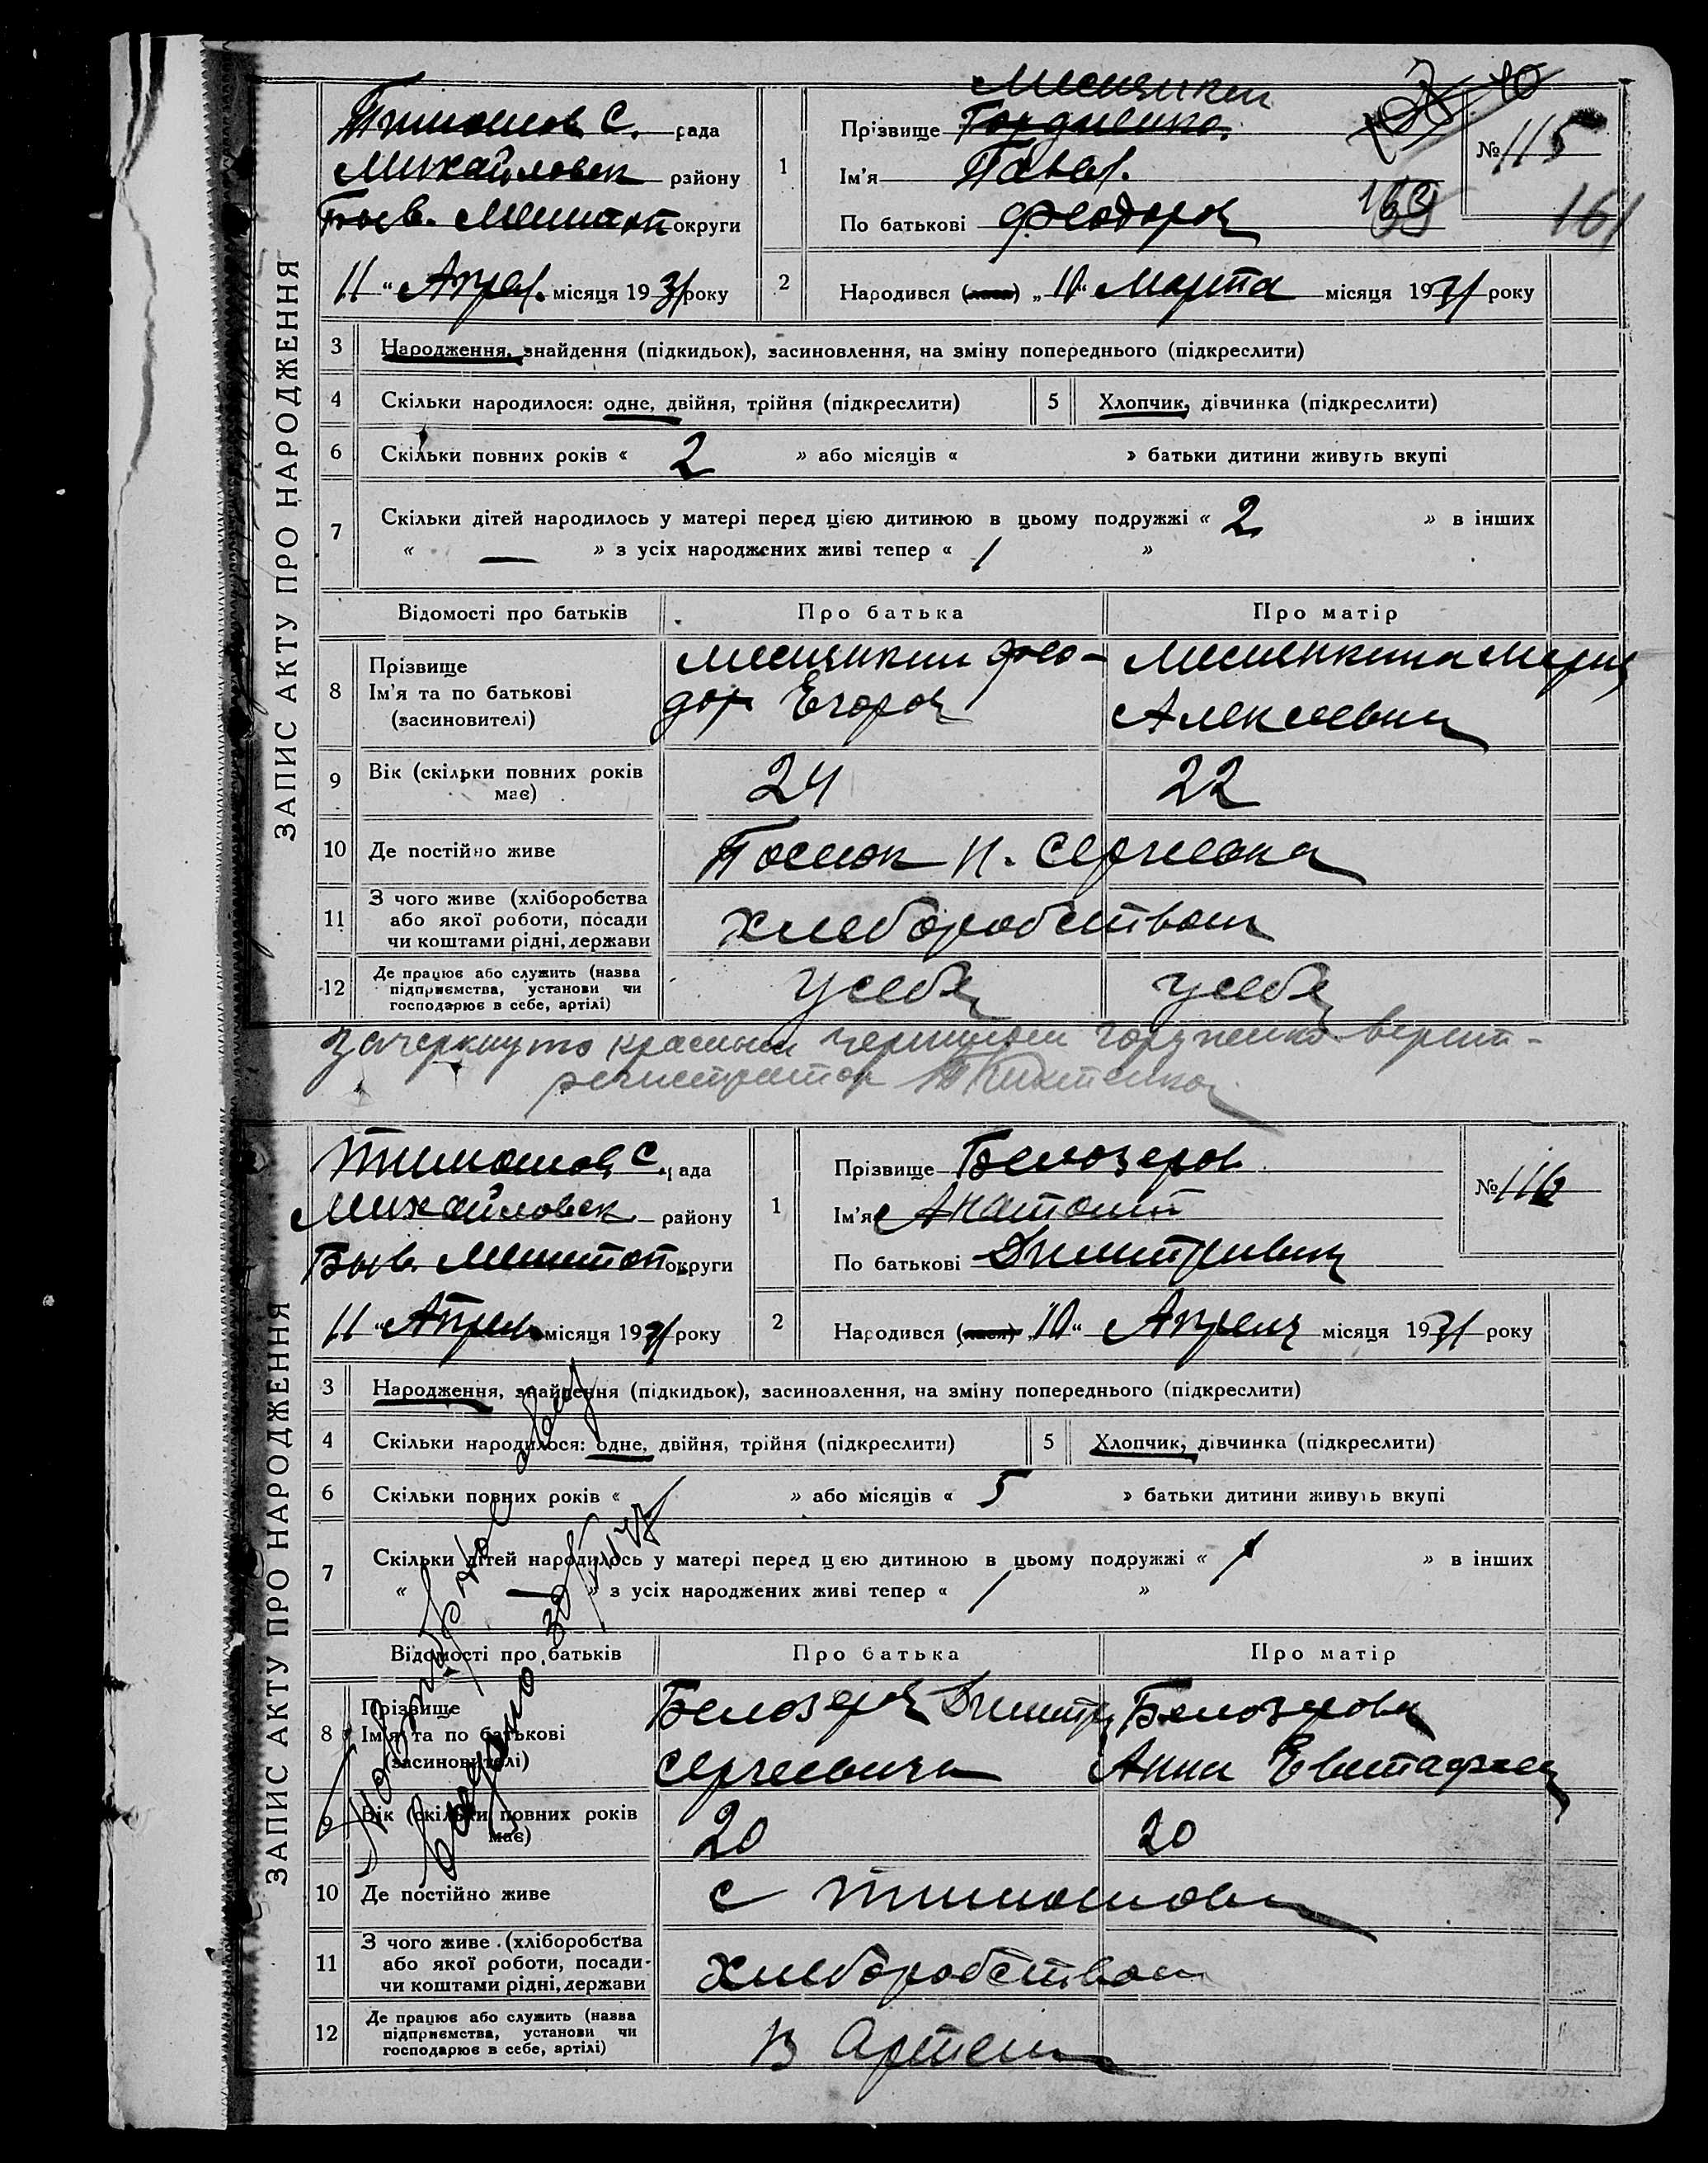 ЗАПИС АКТУ ПРО НАРОДЖЕННЯ
Тимошов С. рада
Михайловск району
Быв. Мелитоп округи
11 " Апрел. місяця 1931 року
1
Прізвище Гордиенко.
Ім'я Павел.
По батькові Феодоров
№ 115
161
2
Народився (лася) „10" Марта місяця 1931 року
3 Народження, знайдення (підкидьок), засиновлення, на зміну попереднього (підкреслити)
4 Скільки народилося: одне, двійня, трійня (підкреслити) 5 Хлопчик, дівчинка (підкреслити)
6 Скільки повних років « 2 » або місяців « » батьки дитини живуть вкупі
7 Скільки дітей народилось у матері перед цією дитиною в цьому подружжі « 2 » в інших
« — » з усіх народжених живі тепер « 1 »
Відомості про батьків Про батька Про матір
8 Прізвище
Ім'я та по батькові
(засиновителі)
Фео-
дор Егоров
Мария
Алексеевна
9 Вік (скільки повних років має) 24 22
10 Де постійно живе Поселок Н. Сергеевка
11 З чого живе (хліборобства
або якої роботи, посади
чи коштами рідні, держави
Хлеборобством
12 Де працює або служить (назва
підприємства, установи чи
господарює в себе, артілі)
у себя у себя
Зачеркнуто красными чернилами Гордиенко верит-
регистратор
ЗАПИС АКТУ ПРО НАРОДЖЕННЯ
Тимошов С. рада
Михайловск району
Быв. Мелитоп. округи
11 " Апрель місяця 1931 року
1
Прізвище Белозеров
Ім'я Анатолий
По батькові Димитриевич
№ 116
2
Народився (лася) „10" Апреля місяця 1931 року
3 Народження, знайдення (підкидьок), засиновлення, на зміну попереднього (підкреслити)
4 Скільки народилося: одне, двійня, трійня (підкреслити) 5 Хлопчик, дівчинка (підкреслити)
6 Скільки повних років « » або місяців « 5 » батьки дитини живуть вкупі
7 Скільки дітей народилось у матері перед цією дитиною в цьому подружжі « 1 » в інших
« — » з усіх народжених живі тепер « 1 »
Повторное
Выдано
Відомості про батьків Про батька Про матір
8 Прізвище
Ім'я та по батькові
(засиновителі)
Белозеров Димитр
Сергеевича
Белозерова
Анна
9 Вік (скільки повних років має) 20 20
10 Де постійно живе с Тимошовка
11 З чого живе (хліборобства
або якої роботи, посади
чи коштами рідні, держави
Хлеборобством
12 Де працює або служить (назва
підприємства, установи чи
господарює в себе, артілі)
В Артели